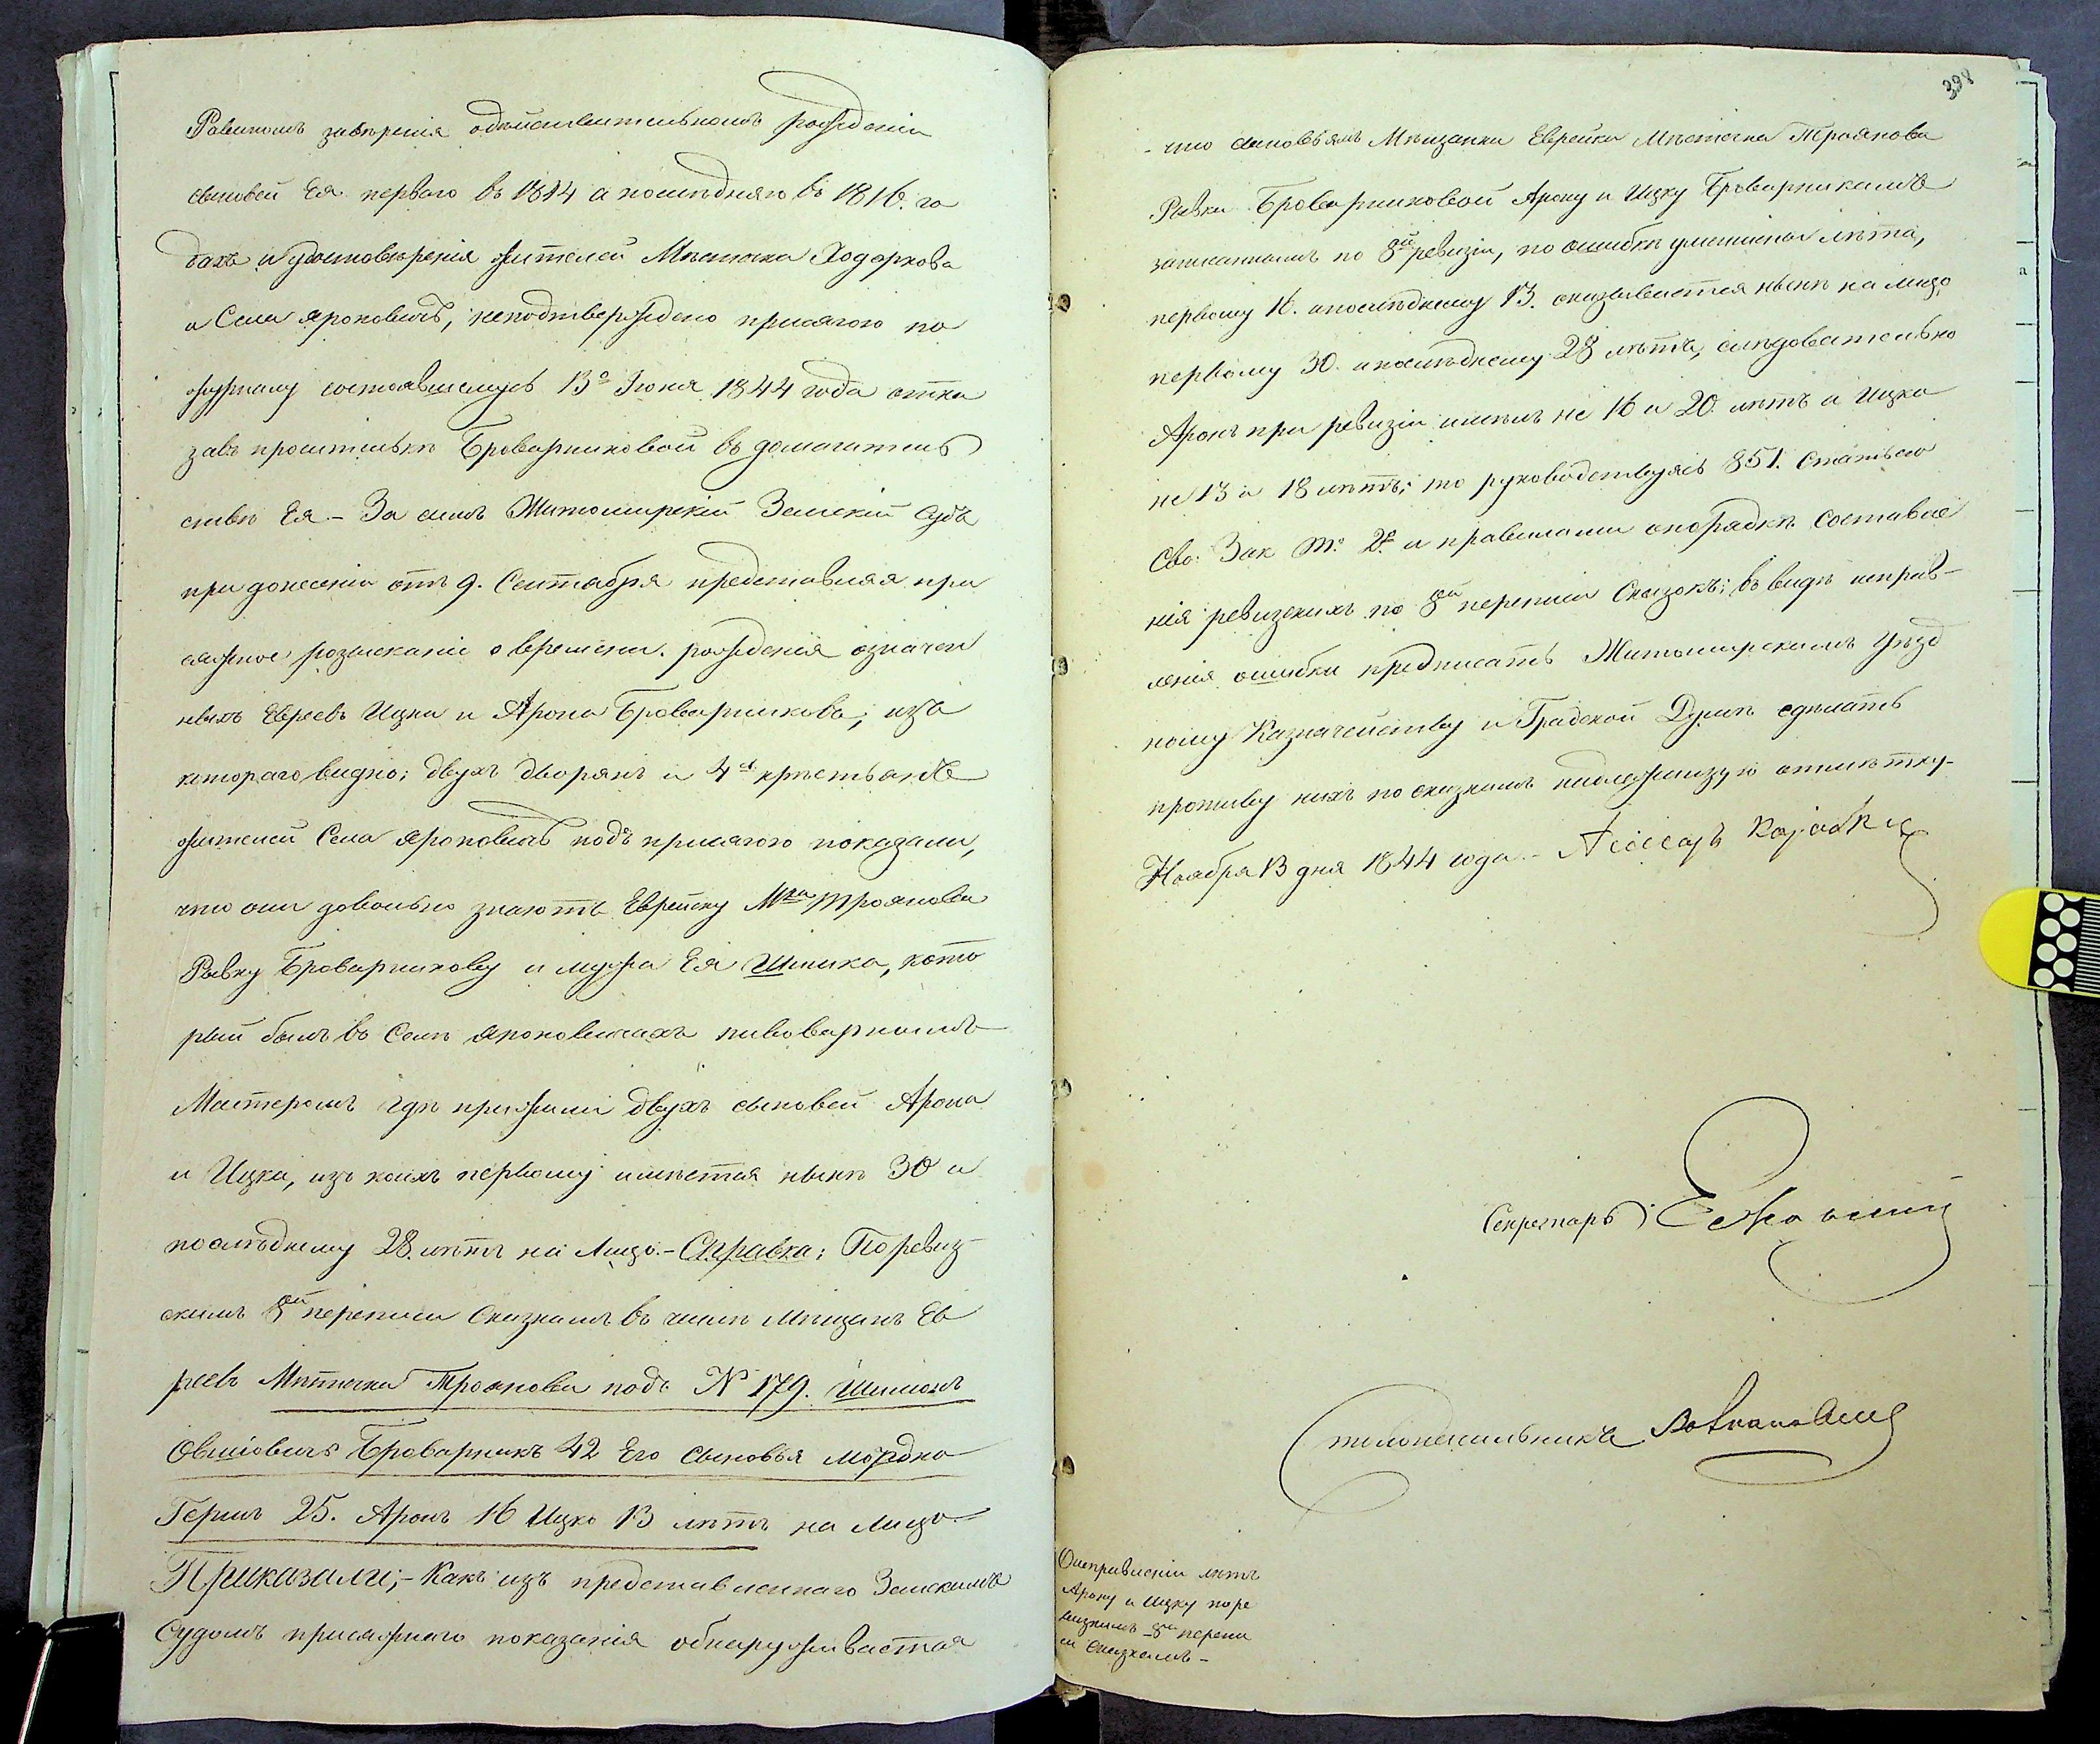 Равиномъ завѣренія о дѣйствительномъ рожденіи
сыновей Ея перваго въ 1814 а послѣдняго въ 1816. го
дахъ и удостовѣренія жителей Мѣстечка Ходоркова
и Села Яроповичъ, неподтверждено присягою по
журналу состоявшемусь 13о Іюня 1844 года отка
завъ просительнѣ Броварниковой въ домагатель
ствѣ Ея – За симъ Житомирскій Земскій Судъ
при донесеніи отъ 9. Сентября представляя при
сяжное розысканіе о времени рожденія означен
ныхъ Евреевъ Ицки и Арона Броварникова; изъ
котораго видно: двухъ дворянъ и 4х крѣстьянъ
жителей Села Яроповичъ подъ присягою показали,
что они довольно знаютъ Еврейку Мка Троянова
Рывку Броварникову и мужа Ея Шимка, кото
рый былъ въ Селѣ Яроповичахъ пивоварнымъ
Мастеромъ гдѣ прижили двухъ сыновей Арона
и Ицка, изъ коихъ первому имѣется нынѣ 30 и
послѣднему 28. лѣтъ на лицо. – Справка: По ревиз-
скимъ 8ой переписи Сказкамъ въ числѣ Мѣщанъ Ев
реевъ Мѣстечка Троянова подъ № 179. Шимонъ
Овшіовичъ Броварникъ 42 Его Сыновья Мордко
Гершъ 25. Аронъ 16 Ицко 13 лѣтъ на лицо
Приказали; – Какъ изъ представленнаго Земскимъ
Судомъ присяжнаго показанія обнаруживается
338
что сыновьямъ Мѣщанки Еврейки Мѣстечка Троянова
Рывки Броварниковой Арону и Ицку Броварникамъ
записаннымъ по 8ой ревизіи, по ошибкѣ уменшены лѣта,
первому 16. а послѣднему 13. оказывается нынѣ на лицо
первому 30. а послѣднему 28 лѣтъ, слѣдовательно
Аронъ при ревизіи имѣлъ не 16 а 20. лѣтъ а Ицко
не 13 а 18 лѣтъ; то руководствуясь 851. Статьею
Сво. Зак Т. и правилами о порядкѣ Составле
нія ревизскихъ по 8ой переписи Сказокъ; въ видѣ исправ-
ленія ошибки предписать Житомирскимъ Уѣзд
ному Казначейству и Градской Думѣ сдѣлать
противу нихъ по сказкамъ надлежащую отмѣтку –
Ноября 13 дня 1844 года. – Ассесоръ
Секретарь
Столоначальникъ
О исправленіи лѣтъ
Арону и Ицку по ре
визкимъ 8ой перепи
си Сказкамъ –